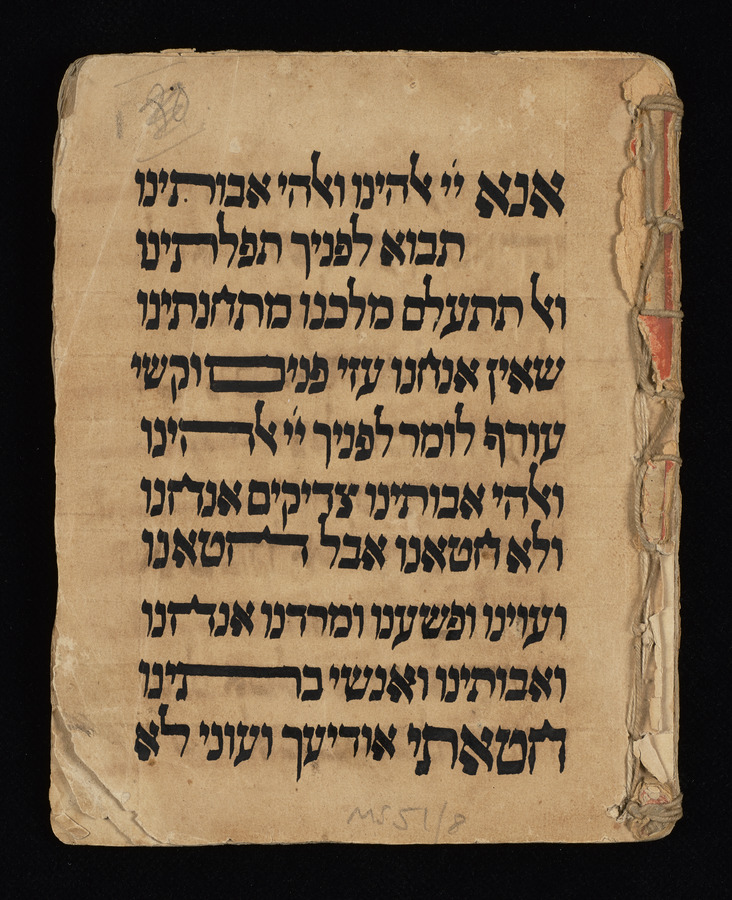 אנא יי ﭏהינו וﭏהי אבותינו
תבוא לפניך תפלתינו
וﭏ תתעלם מלכנו מתחנתינו
שאין אנחנו עזי פנים וקשי
עורף לומר לפניך יי ﭏהינו
וﭏהי אבותינו צדיקים אנחנו
ולא חטאנו אבל חטאנו
ועוינו ופשענו ומרדנו אנחנו
ואבותינו ואנשי ביתינו
חטאתי אודיעך ועוני לא
MS 51/8